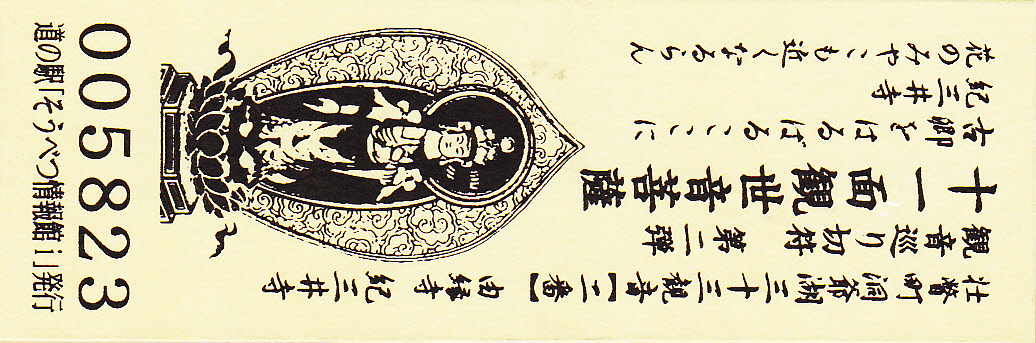 壮瞥町 洞爺湖三十三観音【二番】 由緣寺 紀三井寺
観音巡り切符 第二弾
十一面観世音菩薩
古郷をはるばるここに
紀三井寺
花のみやこも近くなるらん
005823
道の駅「そうべつ情報館i」発行